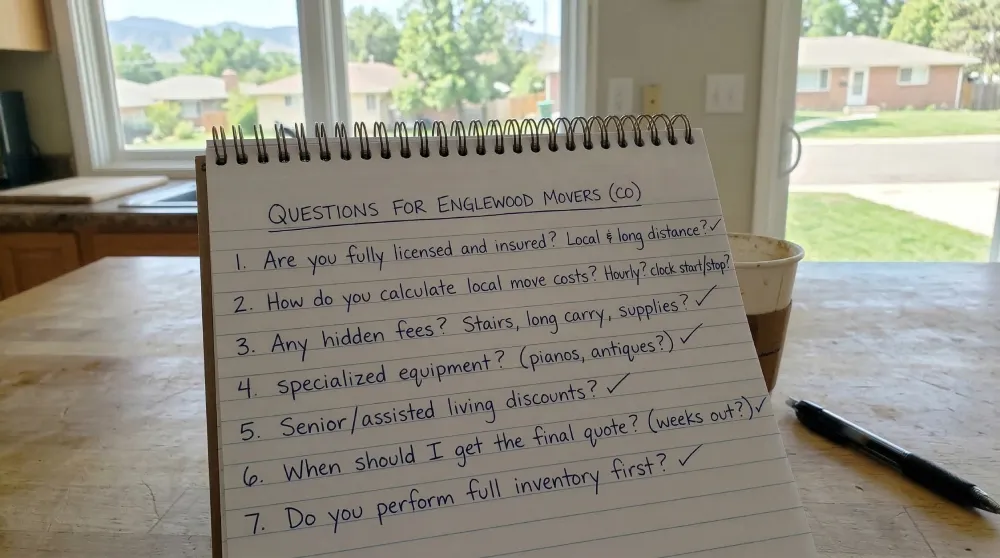 QUESTIONS FOR ENGLEWOOD MOVERS (CO)
1. Are you fully licensed and insured? Local & long distance? ✓
2. How do you calculate local move costs? Hourly? clock start/stop?
3. Any hidden fees? Stairs, long carry, supplies? ✓
4. specialized equipment? (pianos, antiques?) ✓
5. Senior/assisted living discounts? ✓
6. When should I get the final quote? (weeks out?) ✓
7. Do you perform full inventory first? ✓